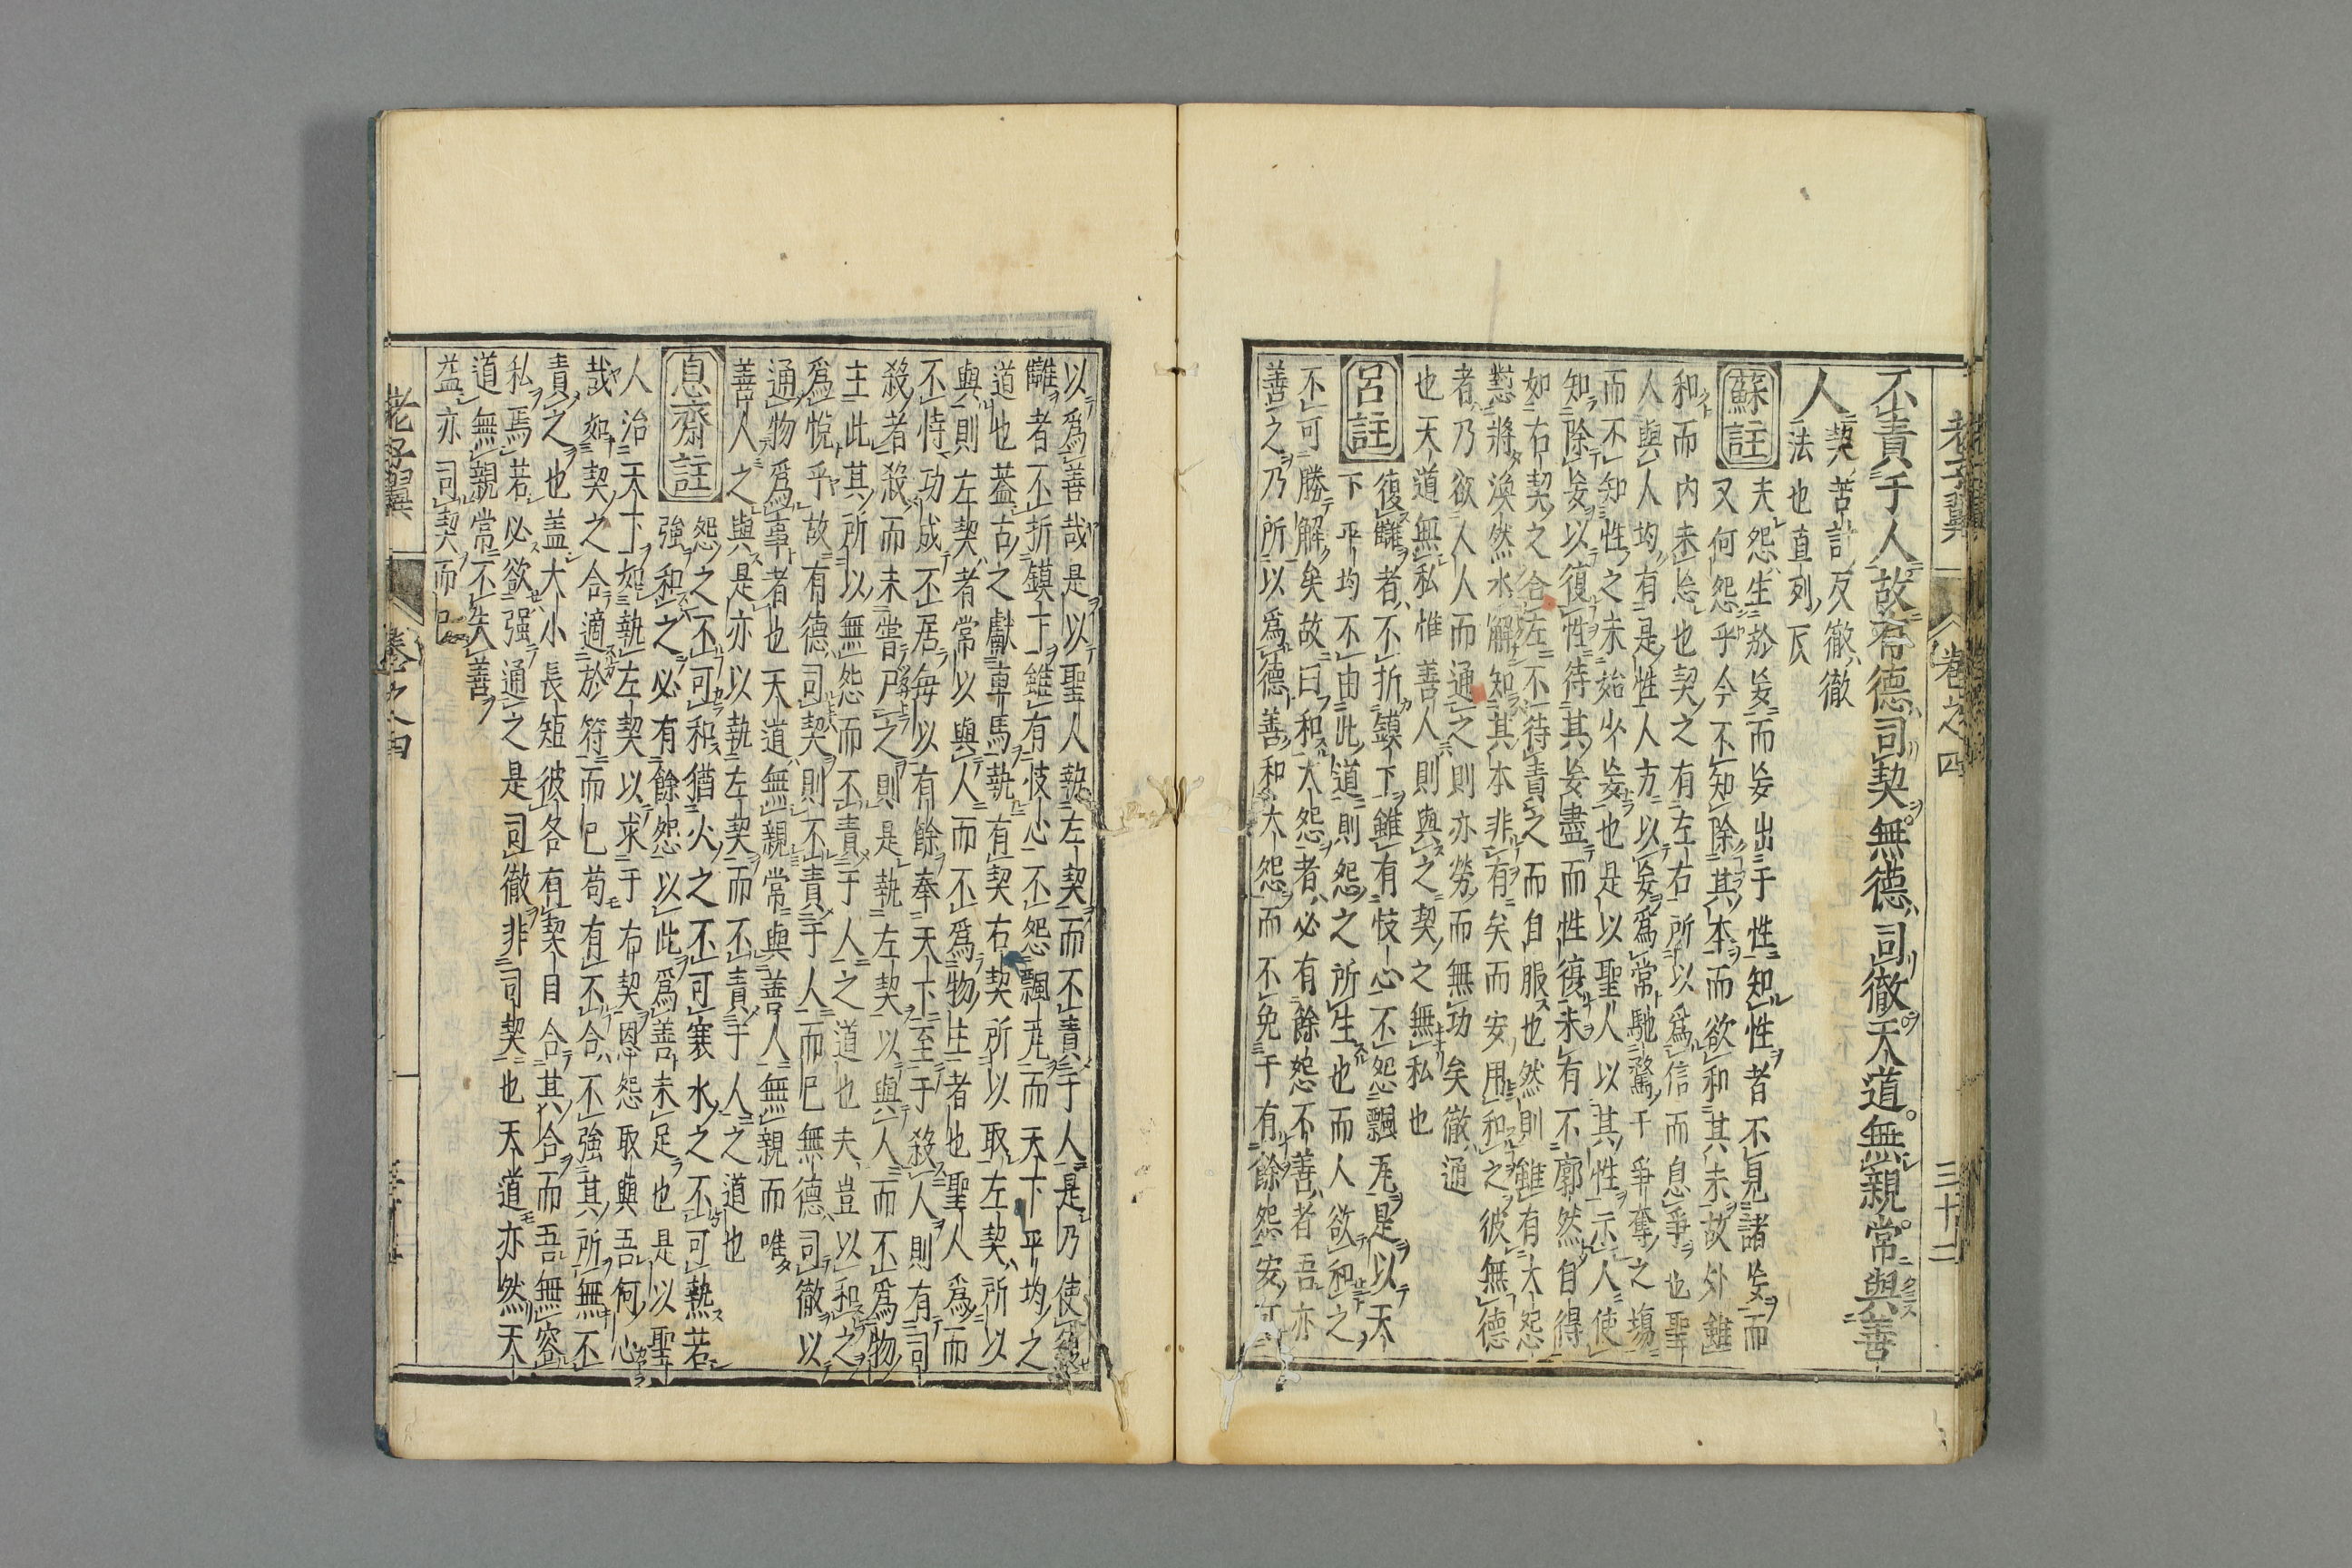 老子翼 卷之四 三十二
不責于人故有德司契無德司徹天道無親常與善
人
契苦計反徹徹
法也直列反
蘇註
夫怨生於妄而妄出于性知性者不見諸妄而
又何怨乎今不知除其本而欲和其末故外雖
和而內未忘也契之有左右所以爲信而息爭也聖
人與人均有是性人方以妄爲常馳騖于爭奪之場
而不知性之未始少妄也是以聖人以其性示人使
知除妄以復性待其妄盡而性復未有不廓然自得
如右契之合左不待責之而自服也然則雖有大怨
懟將渙然水解知其本非有矣而安用和之彼無德
者乃欲人人而通之則亦勞而無功矣徹通
也天道無私惟善人則與之契之無私也
呂註
復讎者不折鏌干雖有忮心不怨飄瓦是以天
下平均不由此道則怨之所生也而人欲和之
不可勝解矣故曰和大怨者必有餘怨不善者吾亦
善之乃所以爲德善和大怨而不免于有餘怨安可
以爲善哉是以聖人執左契而不責于人是乃使復
讎者不折鏌干雖有忮心不怨飄瓦而天下平均之
道也蓋古之獻車馬執有契右契所以取左契所以
與則左契者常以與人而不爲物主者也聖人爲而
不恃功成不居每以有餘奉天下至于殺人則有司
殺者殺而未嘗尸之則是執左契以與人而不爲物
主此其所以無怨而不責于人之道也夫豈以和之
爲悅乎故有德司契則不責于人而已無德司徹以
通物爲事者也天道無親常與善人無親而唯
善人之與是亦以執左契而不責于人之道也
息齋註
怨之不可和猶火之不可褰水之不可熱若
強和之必有餘怨以此爲善未足也是以聖
人治天下如執左契以求于右契恩怨取與吾何心
哉如契之合適於符而已苟有不合不強其所無不
責之也蓋大小長短彼各有契自合其合而吾無容
私焉若必欲强通之是司徹非司契也天道亦然天
道無親常不失善
益亦司契而已
老子翼 卷之四